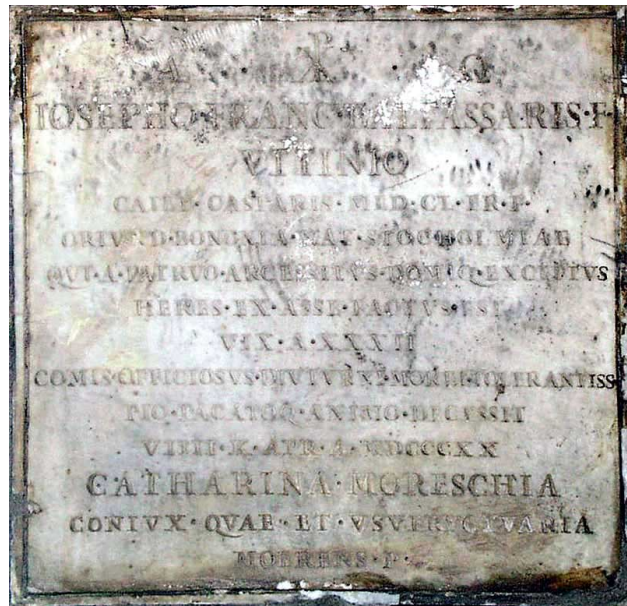 A ☧ Ω
IOSEPHO·FRANC·BALTASSARIS·F
VTTINIO
CAIET·CASPARIS·MED·CL·FR·F·
ORIVND·BONONIA·NAT·STOCHOLMIAE
QVI·A·PATRVO·ARCESSITVS·DOMIQ·EXCEPTVS
HERES·EX·ASSE·FACTVS·EST
VIX·A·XXXII
COMIS·OFFICIOSVS·DIVTVRNI·MORBI·TOLERANTISS
PIO·PACATOQ·ANIMO·DECESSIT
VIIII·K·APR·A·MDCCCXX
CATHARINA·MORESCHIA
CONIVX·QVAE·ET·VSVFRVCTVARIA
MOERENS·P·